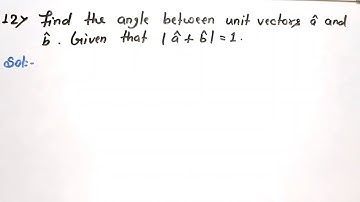 12) Find the angle between unit vectors â and
b̂. Given that |â + b̂| = 1.
Sol:-